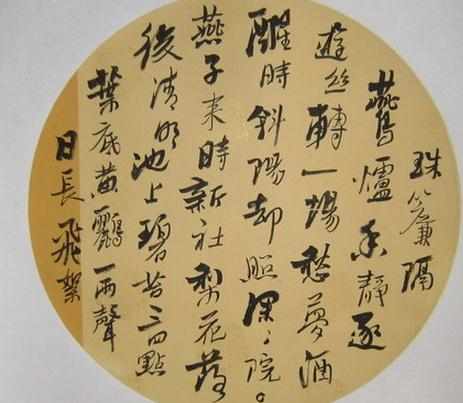 珠簾隔
鷰爐香靜逐
遊絲轉一場愁夢酒
醒時斜陽却照深々院。
燕子来時新社梨花落
後清明池上碧苔三四點
葉底黄鸝一兩聲
日長飛絮